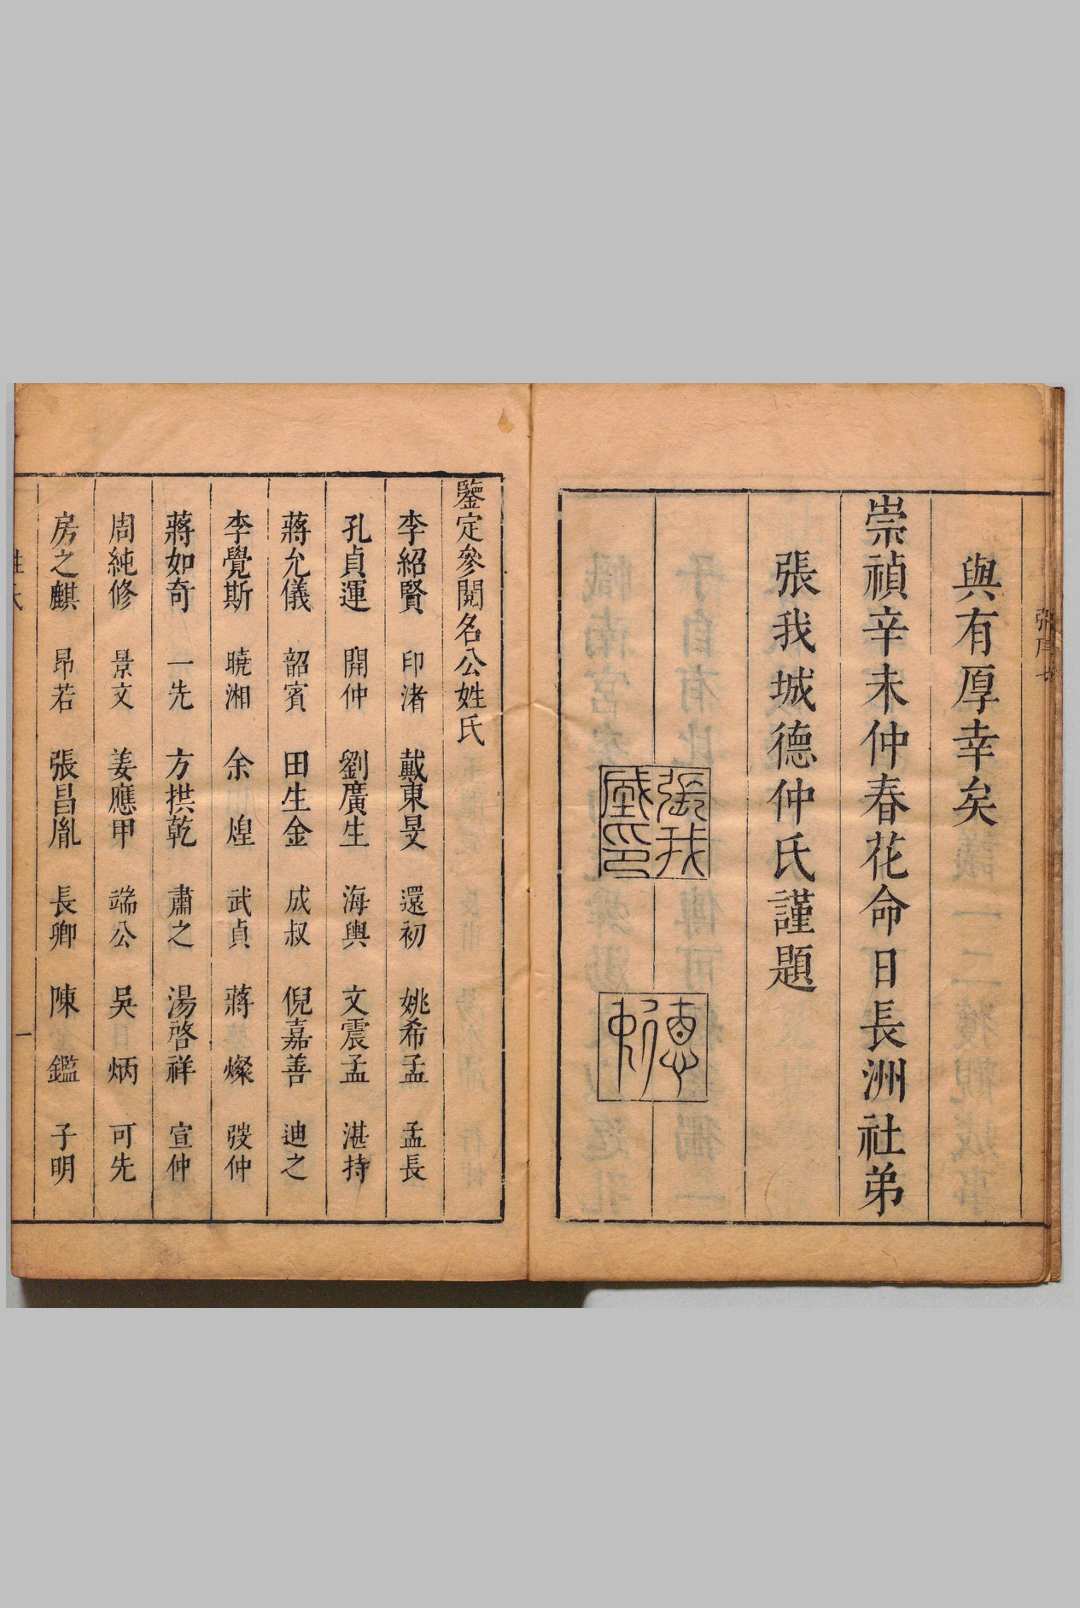 與有厚幸矣
崇禎辛未仲春花命日長洲社弟
張我城德仲氏謹題
張我城印
德仲
鑒定參閱名公姓氏
李紹賢 印渚 戴東旻 還初 姚希孟 孟長
孔貞運 開仲 劉廣生 海輿 文震孟 湛持
蔣允儀 韶賓 田生金 成叔 倪嘉善 迪之
李覺斯 曉湘 余煌 武貞 蔣燦 弢仲
蔣如奇 一先 方拱乾 肅之 湯啓祥 宣仲
周純修 景文 姜應甲 端公 吳炳 可先
房之麒 昂若 張昌胤 長卿 陳鑑 子明
一